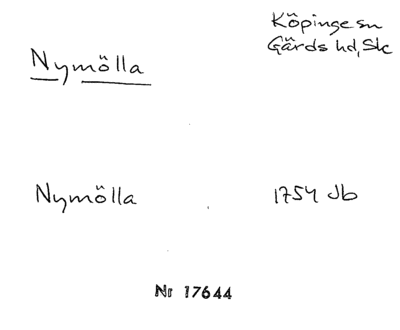 Nymölla
Köpinge sn
Gärds hd, Sk
Nymölla 1754 Jb
Nr 17644